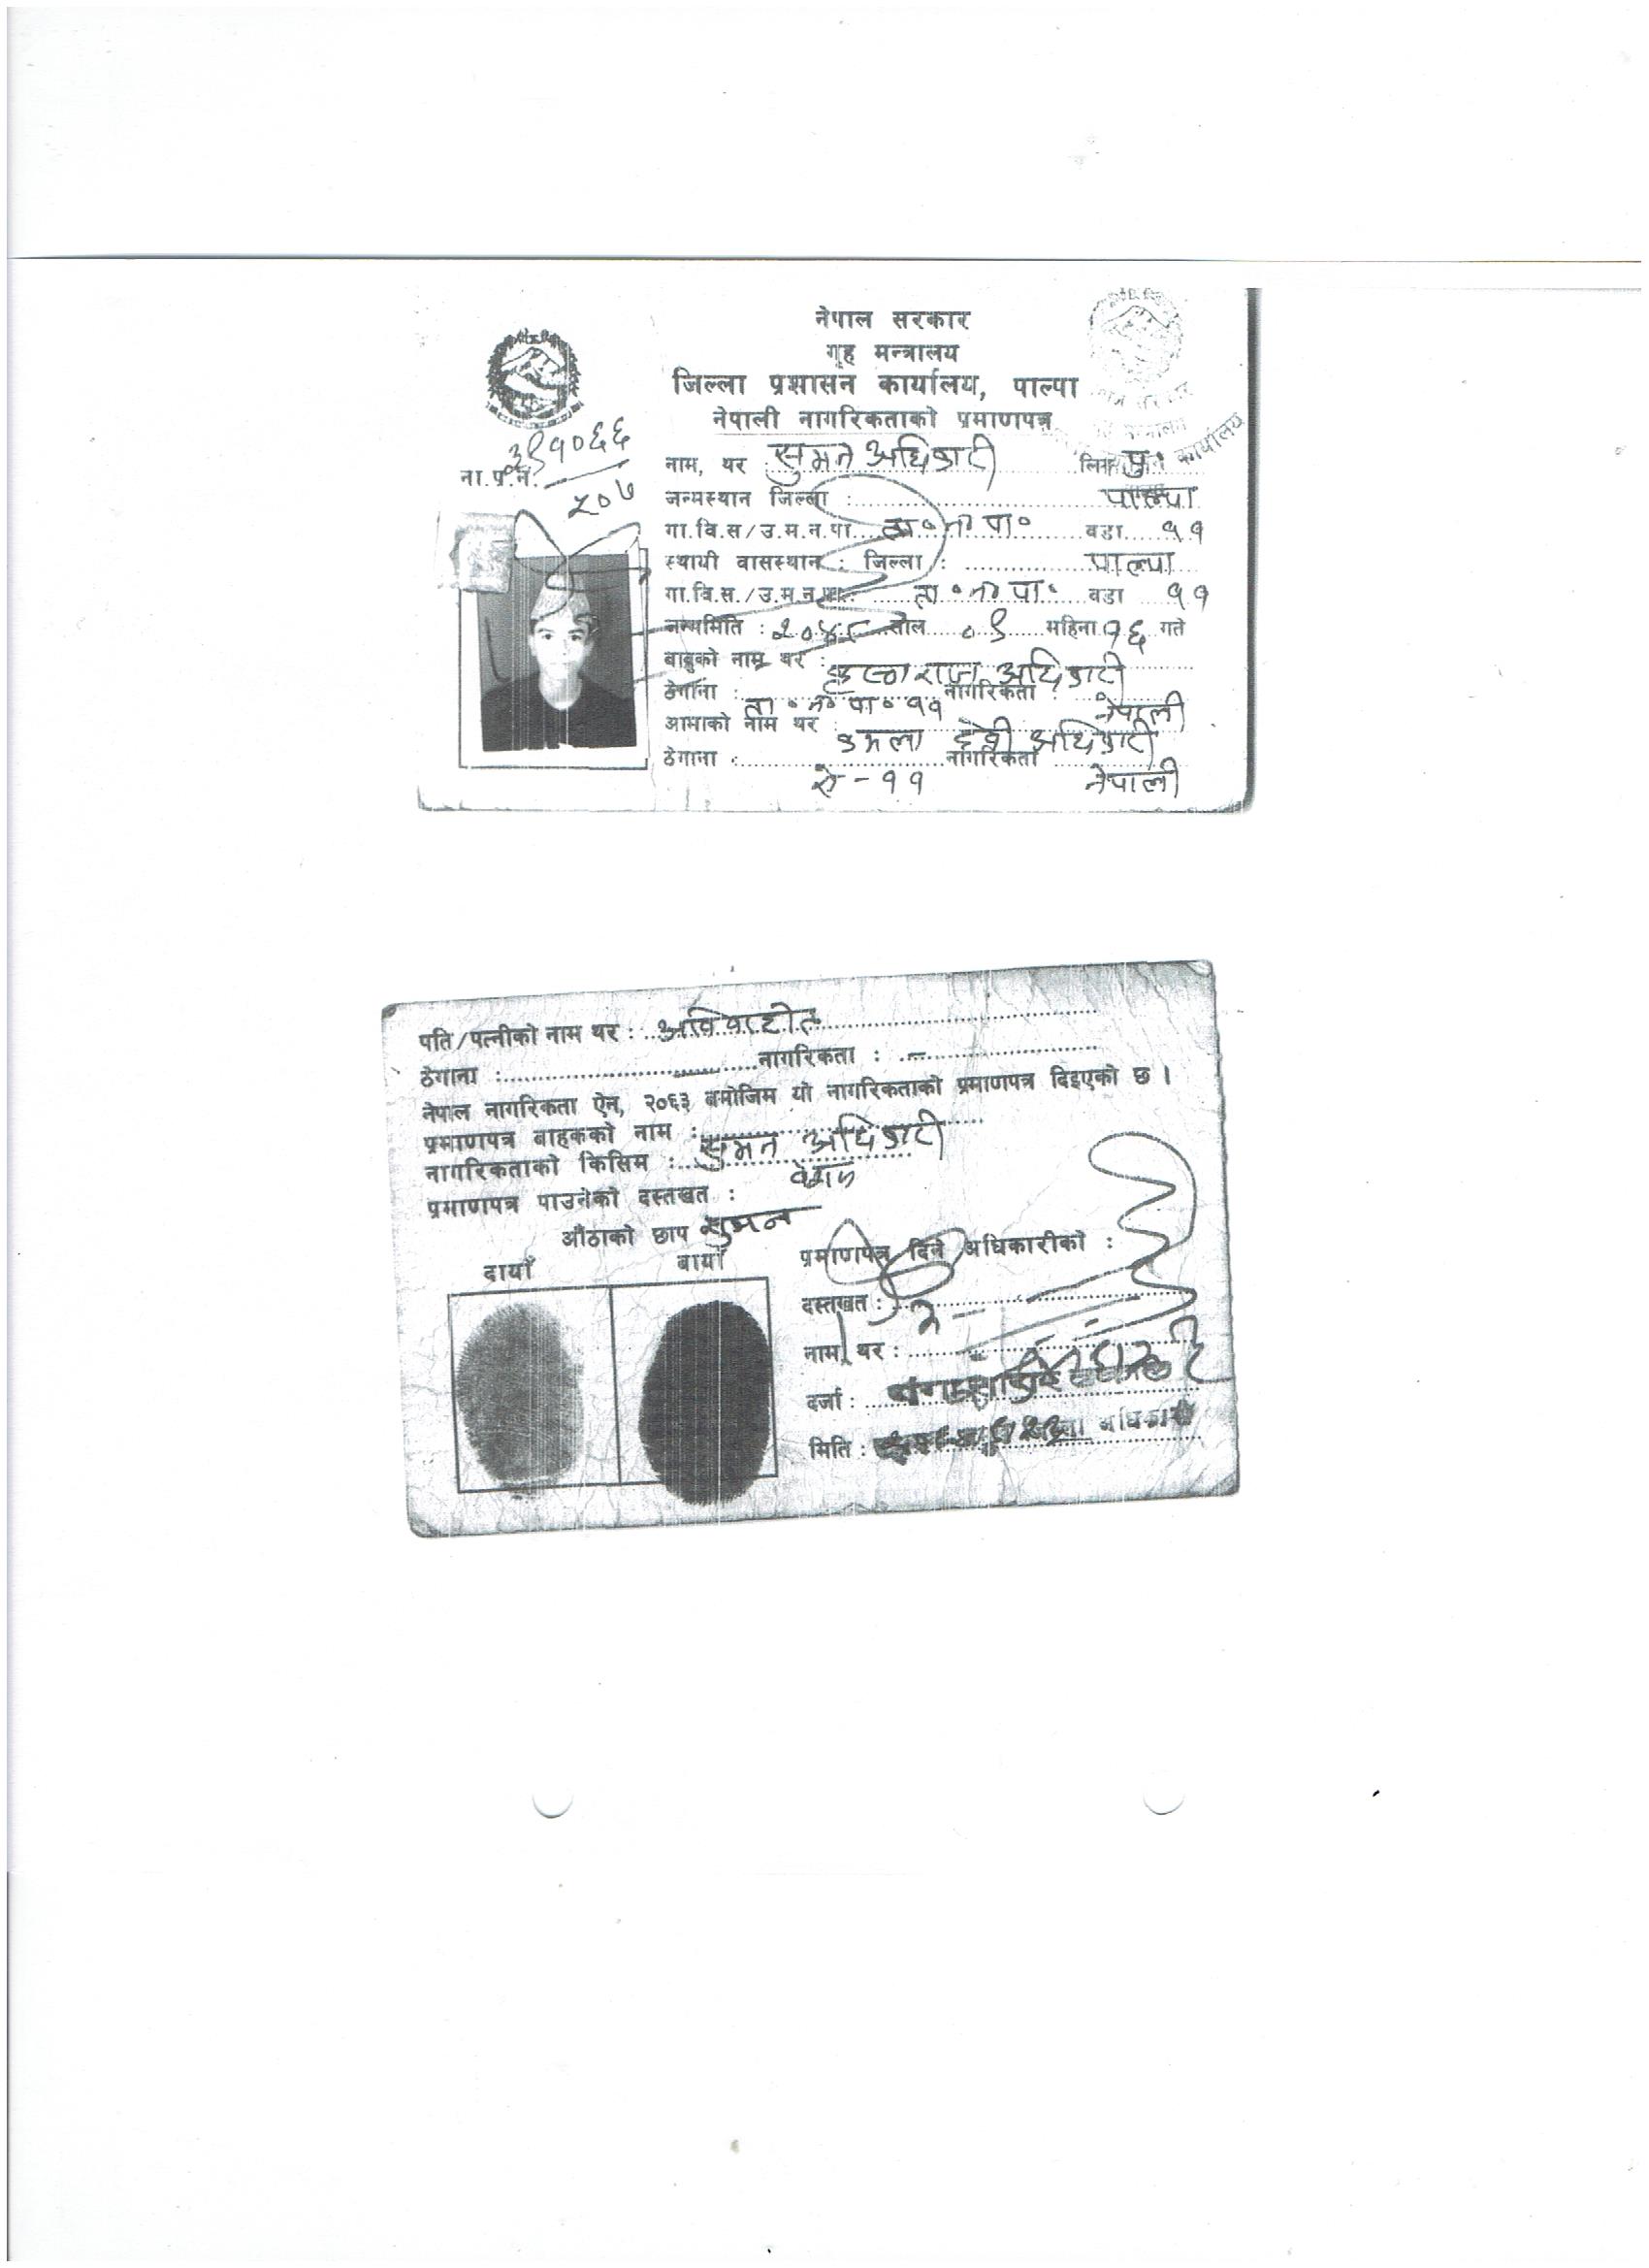 नेपाल सरकार
गृह मन्त्रालय
जिल्ला प्रशासन कार्यालय, पाल्पा
नेपाली नागरिकताको प्रमाणपत्र
ना.प्र.नं.
नाम, थर : सुमन अधिकारी लिङ्ग पु.
जन्मस्थान जिल्ला : पाल्पा
गा.वि.स/उ.म.न.पा. ता॰न॰पा॰ वडा ११
स्थायी वासस्थान : जिल्ला : पाल्पा
गा.वि.स./उ.म.न.पा. ता॰न॰पा॰ वडा ११
जन्ममिति : साल ०९ महिना १६ गते
बाबुको नाम थर : अधिकारी
ठेगाना : ता॰न॰पा॰११ नागरिकता : नेपाली
आमाको नाम थर : देवी अधिकारी
ठेगाना : ऐ-११ नागरिकता नेपाली
पति/पत्नीको नाम थर : अविवाहीत
ठेगाना : नागरिकता : –
नेपाल नागरिकता ऐन, २०६३ बमोजिम यो नागरिकताको प्रमाणपत्र दिइएको छ ।
प्रमाणपत्र बाहकको नाम : सुमन अधिकारी
नागरिकताको किसिम :
प्रमाणपत्र पाउनेको दस्तखत : सुमन
औंठाको छाप
दायाँ बायाँ
प्रमाणपत्र दिने अधिकारीको :
दस्तखत :
नाम थर :
दर्जा :
मिति : अधिकारी